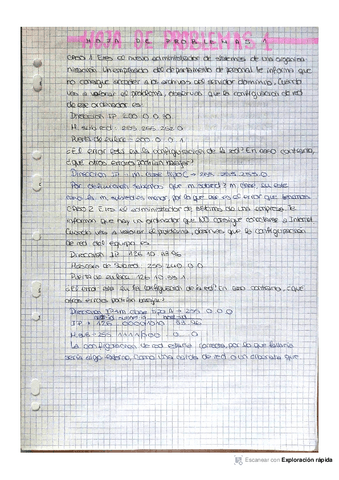 HOJA DE PROBLEMAS 1
Caso 1. Eres el nuevo administrador de sistemas de una organiza
nización. Un empleado del departamento de personal te informa que
no consigue acceder a los archivos del servidor dominio. Cuando
vas a valorar el problema, observas que la configuración de red
de ese ordenador es:
Dirección IP: 200 0 0 50
M. subred: 255 255 252 0
Puerta de enlace: 200 0 0 1
¿El error está en la configuración de la red? En caso contrario,
¿qué otros errores podrían haber?
Dirección IP: m clase tipo C → 255 255 255 0
Por definición sabemos que m subred
m subred es menor por lo que ese es el error que tenemos
Caso 2. Eres el administrador de sistemas de una empresa. Te
informan que hay un ordenador que NO consigue conectarse a Internet
Cuando vas a valorar el problema, observas que la configuración
de red del equipo es:
Dirección IP: 126 10 48 96
Máscara de Subred: 255 240 0 0
Puerta de enlace: 126 10 55 1
¿El error está en la configuración de la red? En caso contrario, ¿qué
otros errores podrían haber?
Dirección IP: m clase tipo A → 255 0 0 0
IP → 126 00001010 48 96
M sub → 255 11110000 0 0
La configuración de red estaría correcta, por lo que fallaría
sería algo externo. Como una caída de red o un disparate que
Escaneado con Exploración rápida